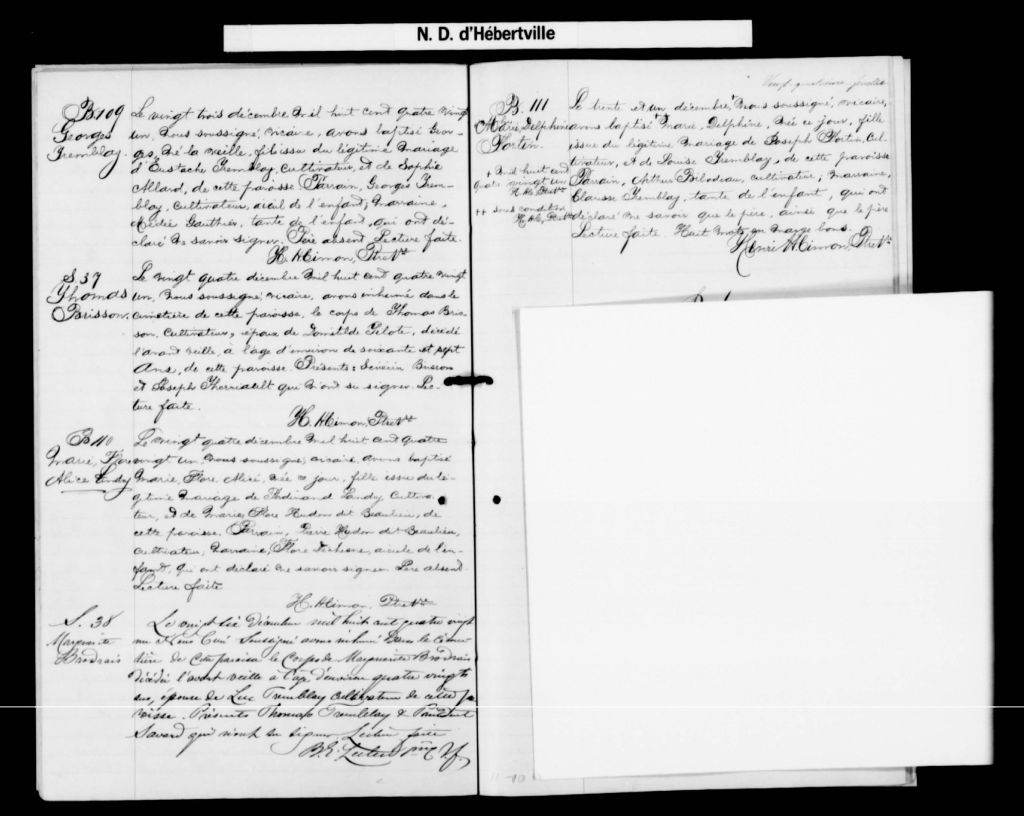 N. D. d'Hébertville
B. 109
Georges
Tremblay.
Le vingt trois décembre mil huit cent quatre vingt
un, Nous soussigné, vicaire, avons baptisé Geor-
ges, né la veille, fils issu du légitime mariage
d'Eustache Tremblay, Cultivateur, et de Sophie
Allard, de cette paroisse. Parrain, Georges Trem-
blay, Cultivateur, aïeul de l'enfant; marraine,
Gauthier, tante de l'enfant, qui ont dé-
claré ne savoir signer. Père absent. Lecture faite.
H. Cimon, Ptre Vic
S. 37
Thomas
Brisson.
Le vingt quatre décembre mil huit cent quatre vingt
un, Nous soussigné, vicaire, avons inhumé dans le
cimetière de cette paroisse, le corps de Thomas Bris-
son, Cultivateur, époux de Domitilde Pilote, décédé
l'avant veille, à l'âge d'environ de soixante et sept
Ans, de cette paroisse. Présents: Sévérin
et Joseph Therriault qui n'ont su signer. Lec-
ture faite.
H. Cimon, Ptre Vic
B. 110
Marie, Flore
Alice Landry
Le vingt quatre décembre mil huit cent quatre
vingt un, nous soussigné, vicaire, avons baptisé
Marie, Flore, Alice, née ce jour, fille issue du lé-
gitime mariage de Ferdinand Landry, Cultiva-
teur, et de Marie, Flore Hudon dit Beaulieu, de
cette paroisse. Parrain, Pierre Hudon dit Beaulieu,
cultivateur; marraine, Flore Dechene, aïeule de l'en-
fant, qui ont déclaré ne savoir signer. Père absent.
Lecture faite
H. Cimon, Ptre Vic
S. 38
Marguerite
Brodrais
Le vingt six Décembre mil huit cent quatre vingt
un Nous Curé Soussigné avons inhumé dans le cime-
tière de cette paroisse le Corps de Marguerite Brodrais
décédée l'avant veille à l'âge d'environ quatre vingts
ans, épouse de Luc Tremblay Cultivateur de cette pa
roisse. Présents Thomas Tremblay &
Savard qui n'ont su signer Lecture faite
B. E. Leclerc
Vingt quatrième feuillet
B. 111
Marie, Delphine
Fortin.
+ mil huit cent
quatre vingt un
++ sous condition
Le trente et un décembre,+ Nous soussigné, vicaire,
avons baptisé ++ Marie, Delphine, née ce jour, fille
issue du légitime mariage de Joseph Fortin, Cul-
tivateur, et de Louise Tremblay, de cette paroisse
Parrain, Arthur Bilodeau, cultivateur; marraine,
Clarisse Tremblay, tante de l'enfant, qui ont
déclaré ne savoir que le père, ainsi que le père
Lecture faite. Huit mots en marge bons.
Henri Cimon, Ptre Vic